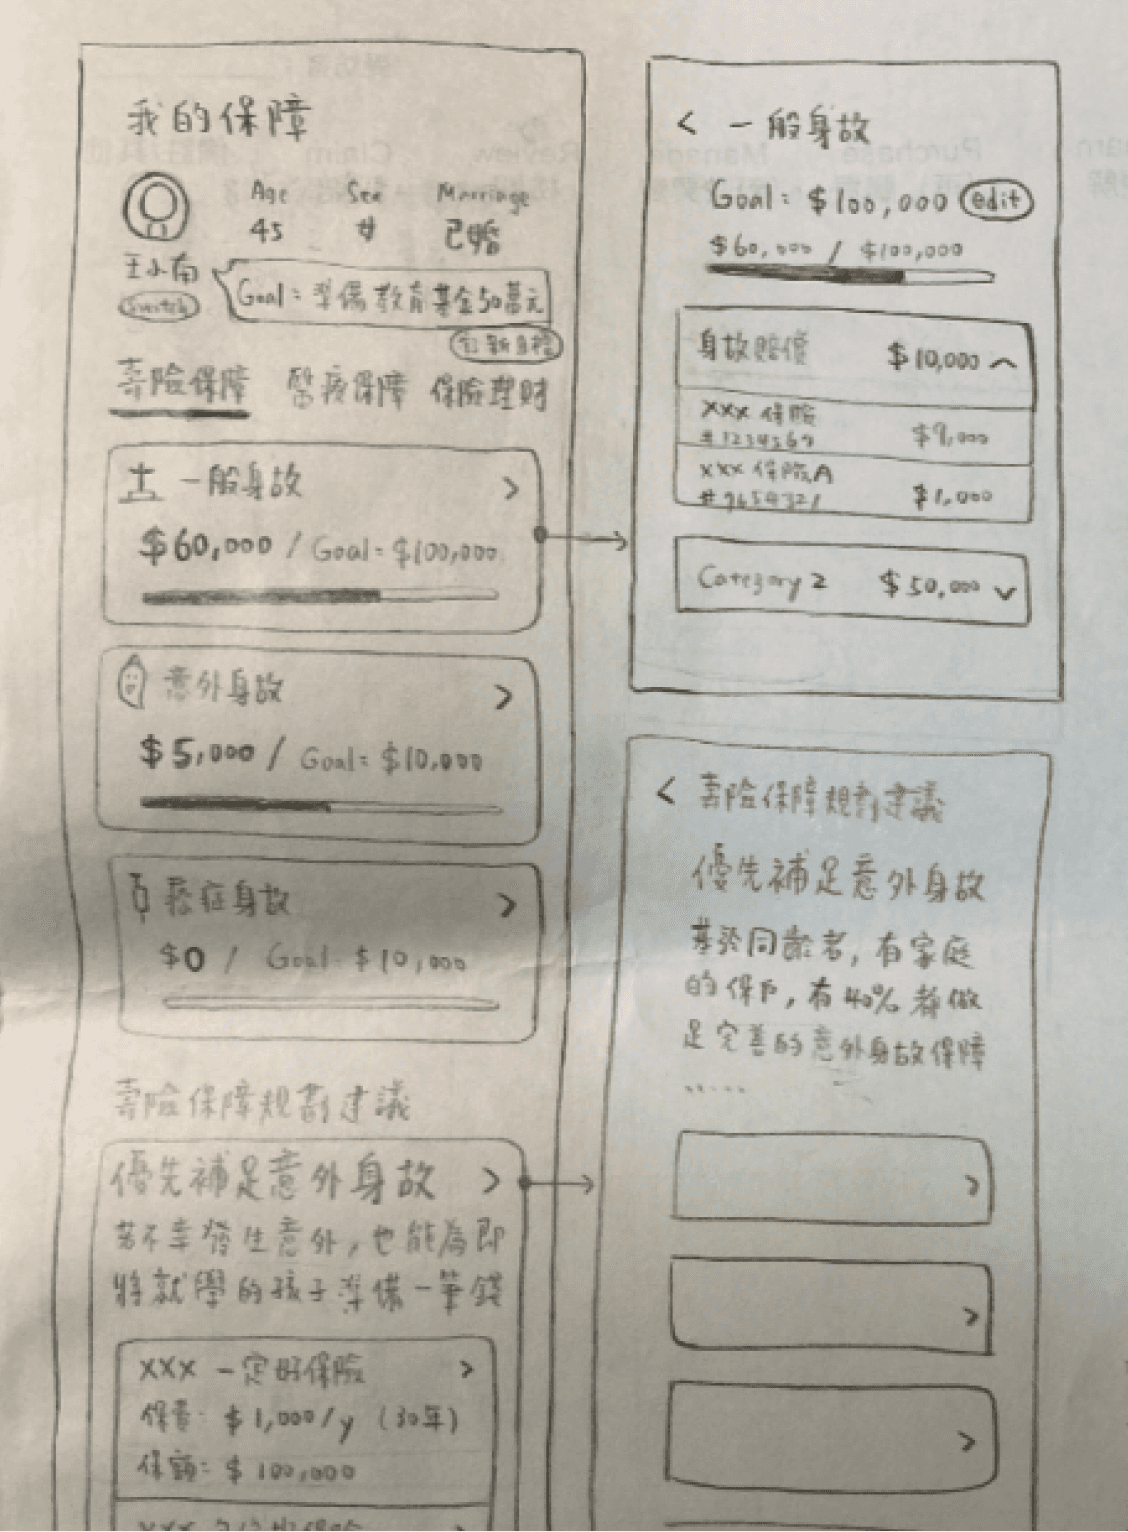 我的保障
Age Sex Marriage
45 女 已婚
王小南
Switch
Goal: 準備教育基金50萬元
訂新目標
壽險保障 醫療保障 保險理財
一般身故 >
$60,000 / Goal: $100,000
意外身故 >
$5,000 / Goal: $10,000
癌症身故 >
$0 / Goal: $10,000
壽險保障規劃建議
優先補足意外身故 >
若不幸發生意外,也能為即
將就學的孩子準備一筆錢
XXX 一定好保險 >
保費: $1,000/y (30年)
保額: $100,000
< 一般身故
Goal: $100,000 edit
$60,000 / $100,000
身故賠償 $10,000
XXX 保險
#1234567 $9,000
XXX 保險A
#7654321 $1,000
Category 2 $50,000
< 壽險保障規劃建議
優先補足意外身故
基於同齡者,有家庭
的保戶,有40%都做
足完善的意外身故保障
......
>
>
>
Purchase
Manage
Review
Claim